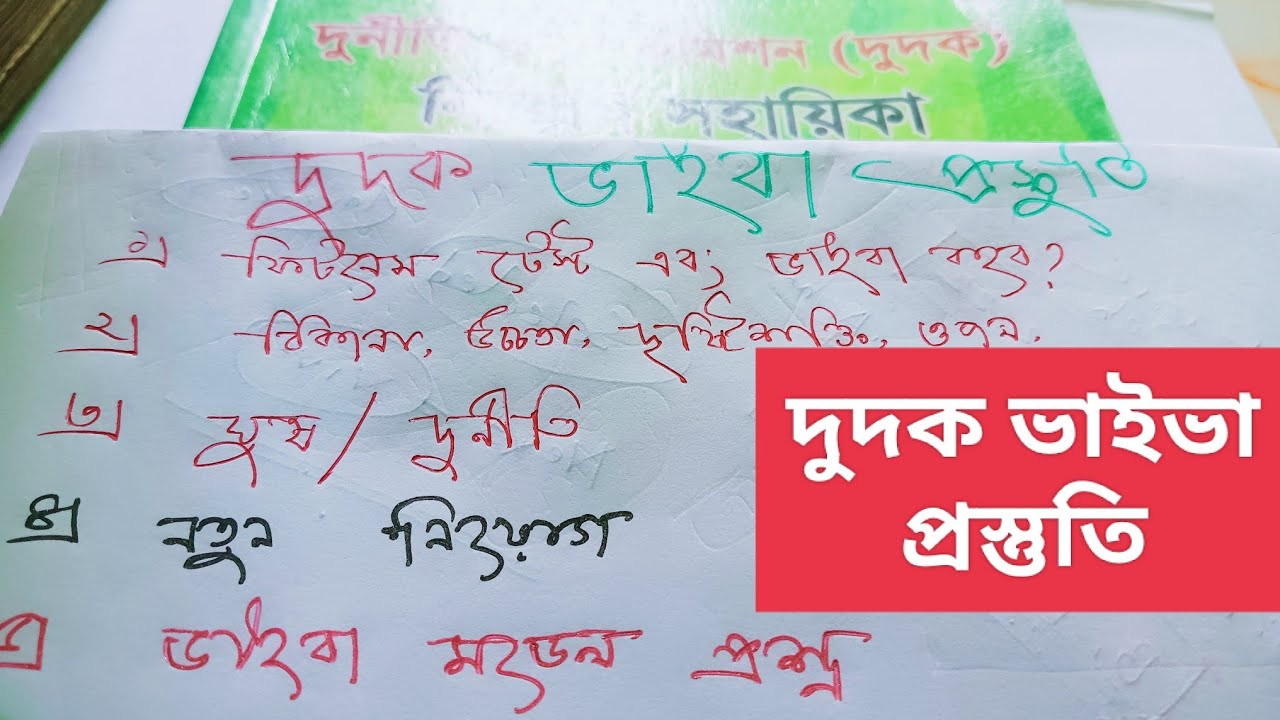 দুর্নীতি শন (দুদক)
সহায়িকা
দুদক ভাইবা প্রস্তুতি
১ ফিটনেস টেস্ট এবং ভাইবা কবে?
২ ঠিকানা, উচ্চতা, দৃষ্টিশক্তি, ওজন,
৩ ঘুষ/দুর্নীতি
৪ নতুন নিয়োগ
৫ ভাইবা মডেল প্রশ্ন
দুদক ভাইভা
প্রস্তুতি